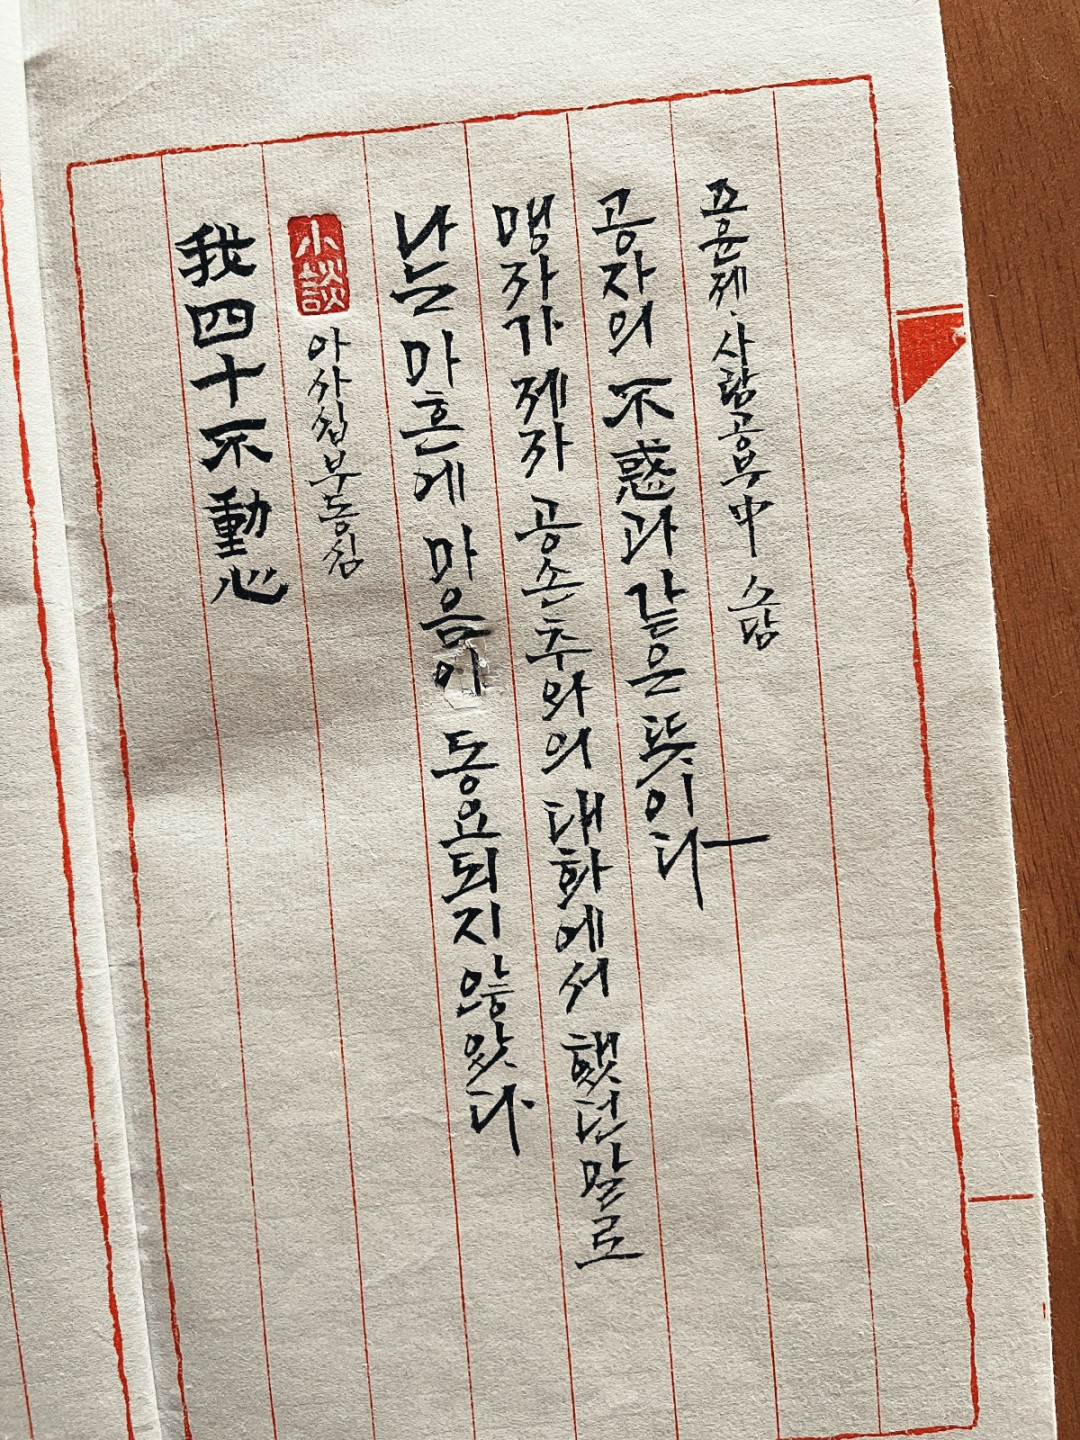 我四十不動心
小談
아사십부동심
나는 마흔에 마음이 동요되지 않았다
맹자가 제자 공손추와의 대화에서 했던 말로
공자의 不惑과 같은 뜻이다
조윤제. 사람공부 中 소담